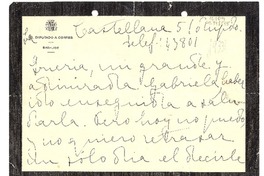 DIPUTADO A CORTES
BADAJOZ
Castellana 51
Telef: 43801
un grande y
admirada Gabriela
solo enseguida a salu
darla. Pero hoy no puedo
y no quiero retrasar
un solo dia el decirle